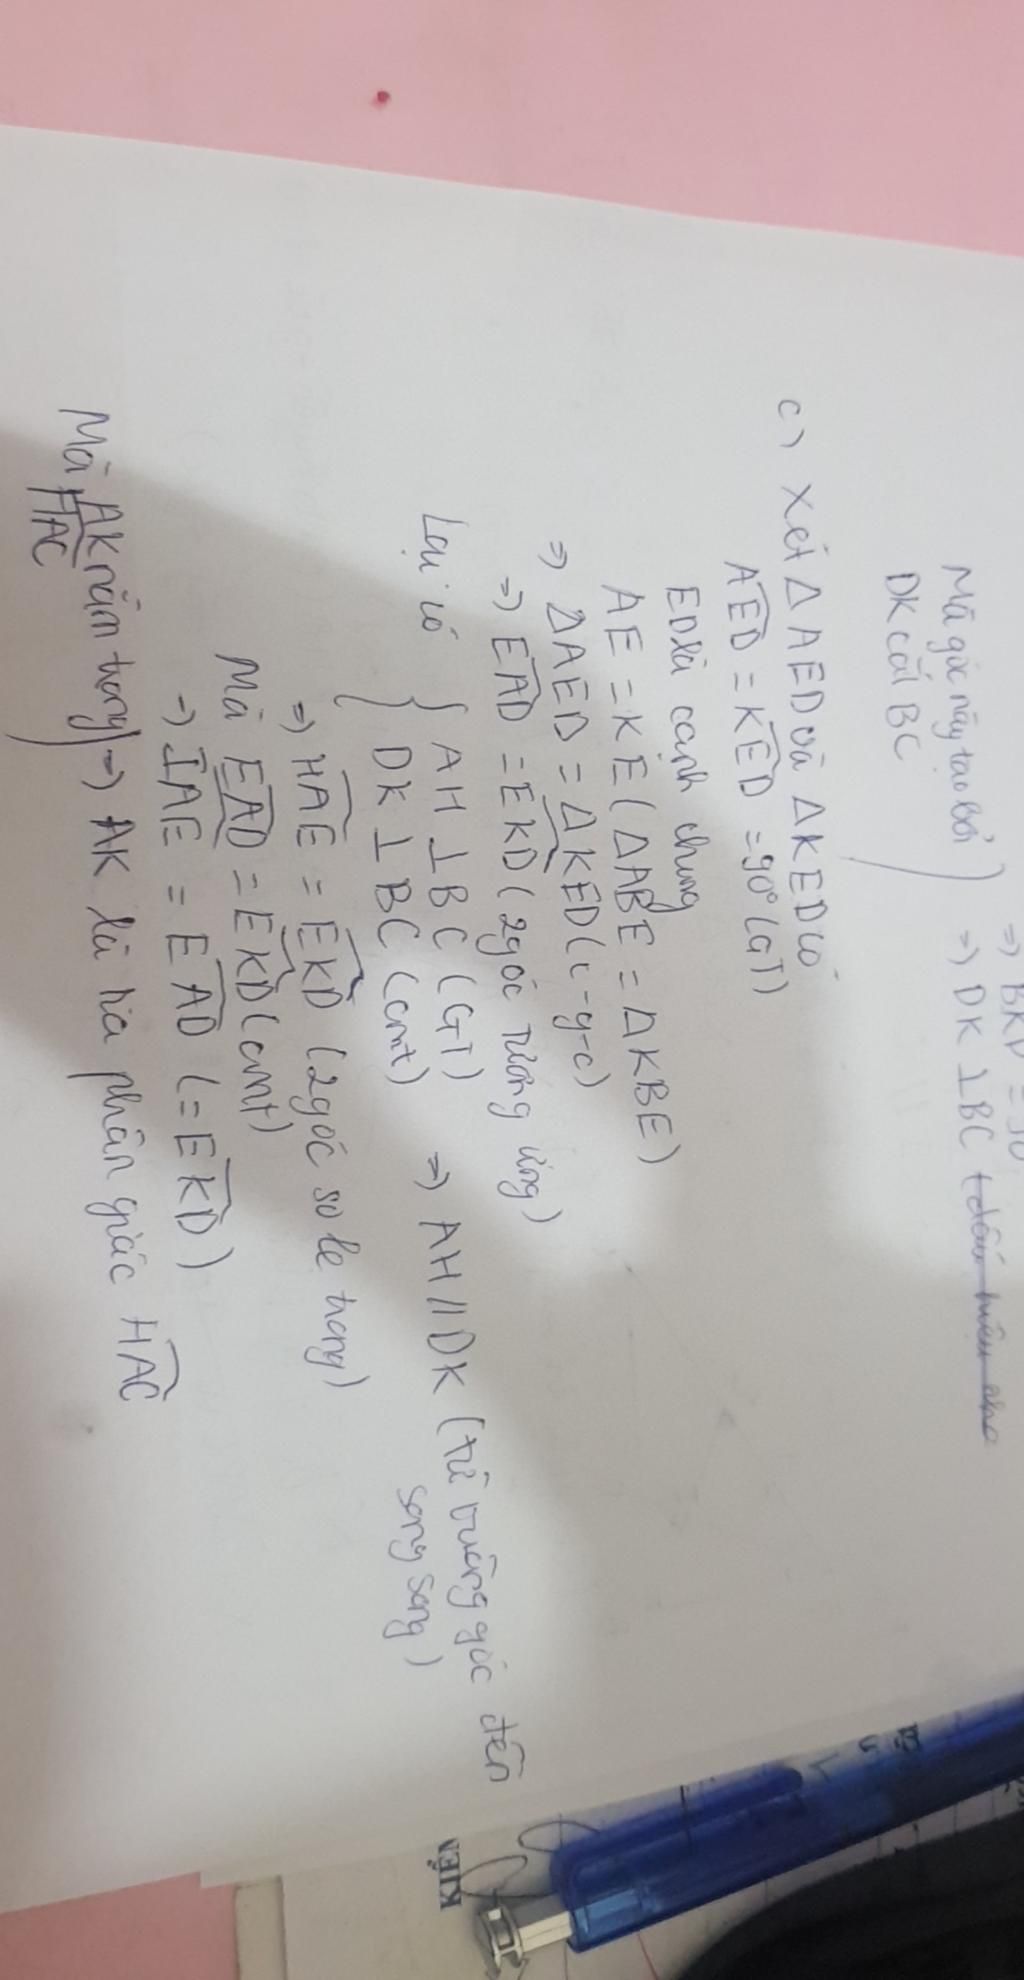 ⇒ BKD = 90
Mà góc này tạo bởi
DK cắt BC
⇒ DK ⊥ BC
c) Xét Δ AED và Δ KED có
AED = KED = 90° (GT)
ED là cạnh chung
AE = KE (ΔABE = ΔKBE)
⇒ ΔAED = ΔKED (c-g-c)
⇒ EAD = EKD (2 góc tương ứng)
Lại có { AH ⊥ BC (GT)
DK ⊥ BC (cmt)
⇒ AH // DK (từ vuông góc đến
song song)
⇒ HAE = EKD (2 góc so le trong)
Mà EAD = EKD (cmt)
⇒ IAE = EAD (= EKD)
Mà AK nằm trong
HAC
⇒ AK là tia phân giác HAC
KIẾN